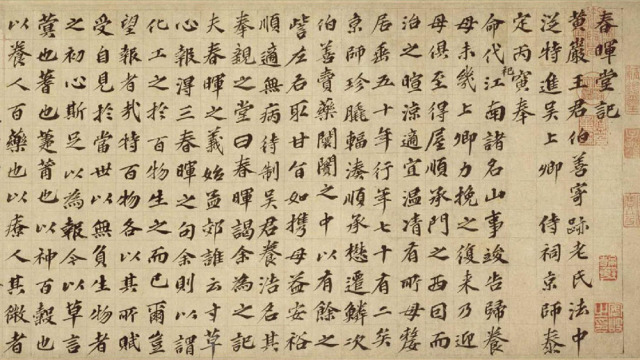 春暉堂記
黃巖王君伯善寄跡老氏法中
從特進吳上卿 侍祠京師泰
定丙寅奉
命代祀江南諸名山事竣告歸養
母未幾上卿力挽之復來乃迎
母俱至得屋順承門之西因而
治之暄涼適宜溫凊有所母嫠
居垂五十年行年七十有二矣
京師珍脆輻湊順承懋遷鱗次
伯善賣藥闤闠之中以有餘之
訾左右取甘旨如携母益安裕
順適無病待制吳君養浩名其
奉親之堂曰春暉謁余為之記
夫春暉之義始孟郊誰云寸草
心報得三春暉之句余則以謂
化工之於百物生之而已爾豈
望報者哉特百物各以其所賦
受自見於當世以無負生物者
之初心斯足以為報今以草言
蓂也蓍也萐莆也以神百穀也
以養人百藥也以療人其微者